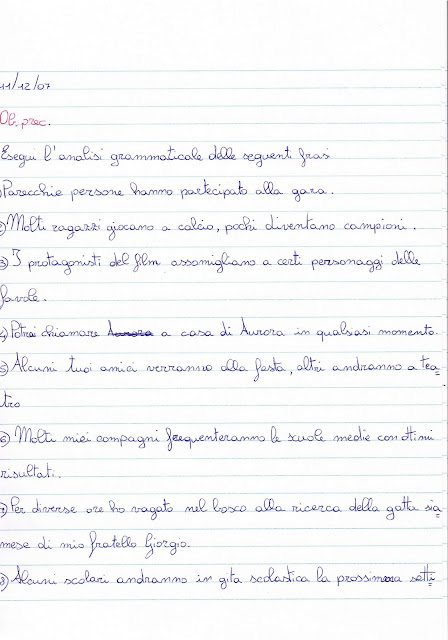 11/12/07
Ob. prec.
Esegui l'analisi grammaticale delle seguenti frasi
) Parecchie persone hanno partecipato alla gara.
2) Molti ragazzi giocano a calcio, pochi diventano campioni.
3) I protagonisti del film assomigliano a certi personaggi delle
favole.
4) Potrai chiamare Aurora a casa di Aurora in qualsasi momento.
5) Alcuni tuoi amici verranno alla festa, altri andranno a tea=
tro
6) Molti miei compagni frequenteranno le scuole medie con ottimi
risultati.
7) Per diverse ore ho vagato nel bosco alla ricerca della gatta sia=
mese di mio fratello Giorgio.
8) Alcuni scolari andranno in gita scolastica la prossima setti=